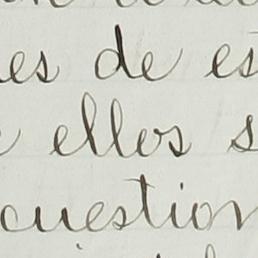 es de es
ellos s
cuestion